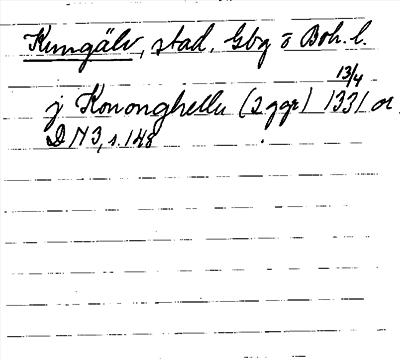 Kungälv, stad. Gbg o Boh. l.
j Kononghellu (2 ggr) 13/4 1331 or.
DN 3, s. 148